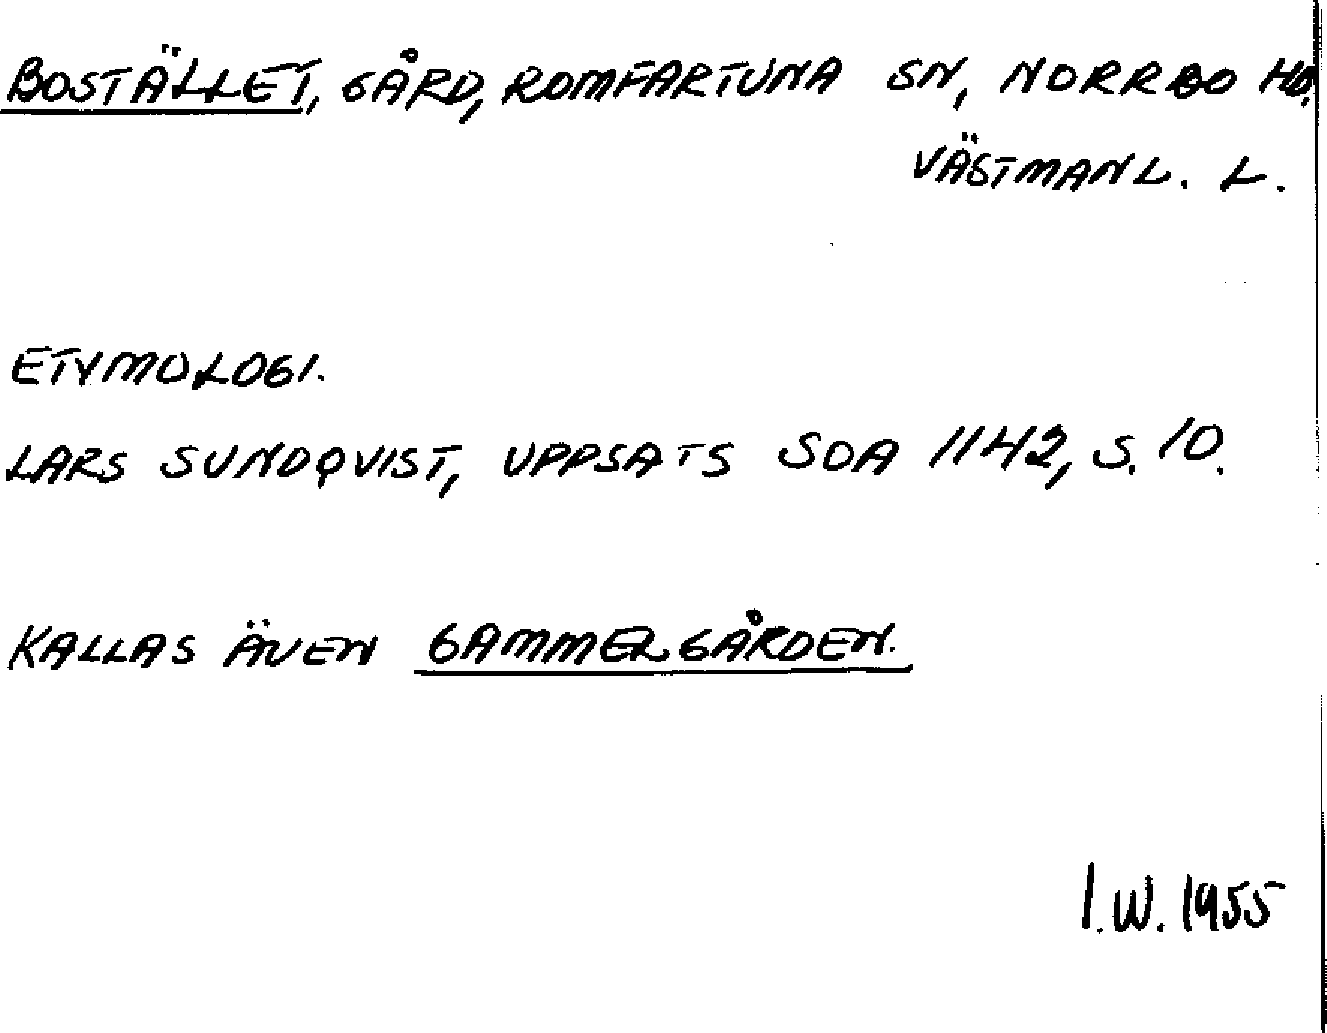 BOSTÄLLET, GÅRD, ROMFARTUNA SN, NORRBO HD.
VÄSTMANL. L.
ETYMOLOGI.
LARS SUNDQVIST, UPPSATS SOA 1142, S. 10.
KALLAS ÄVEN GAMMELGÅRDEN.
I.W. 1955